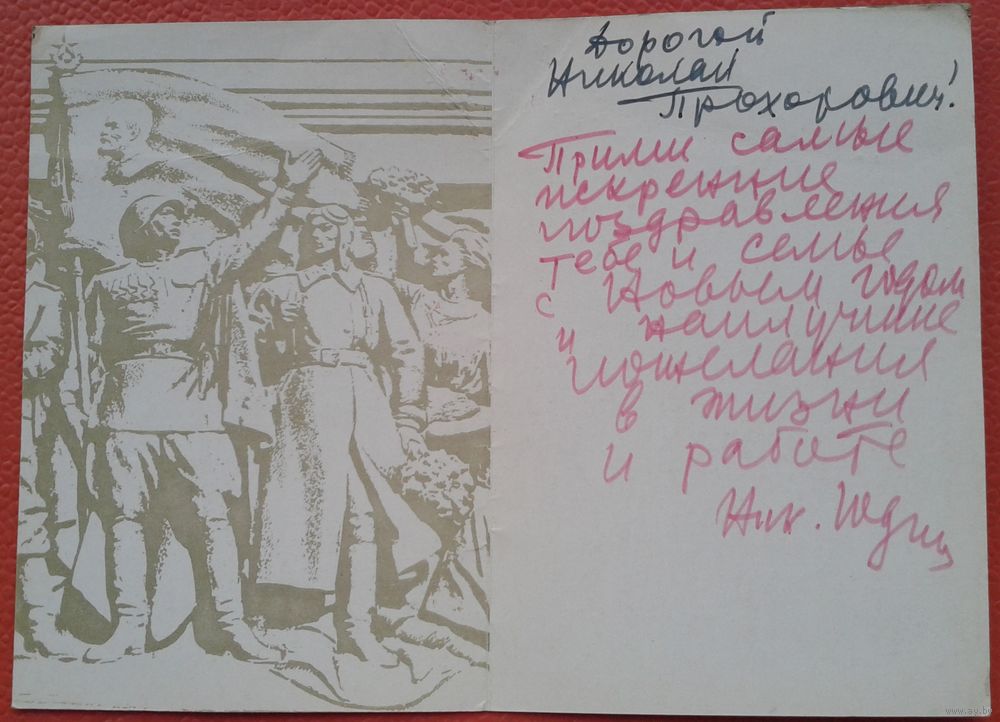 Дорогой
Николай
Прохорович!
Прими самые
искренние
поздравления
тебе и семье
с Новым годом
и наилучшие
пожелания
в жизни
и работе
Ник.
www.ay.by